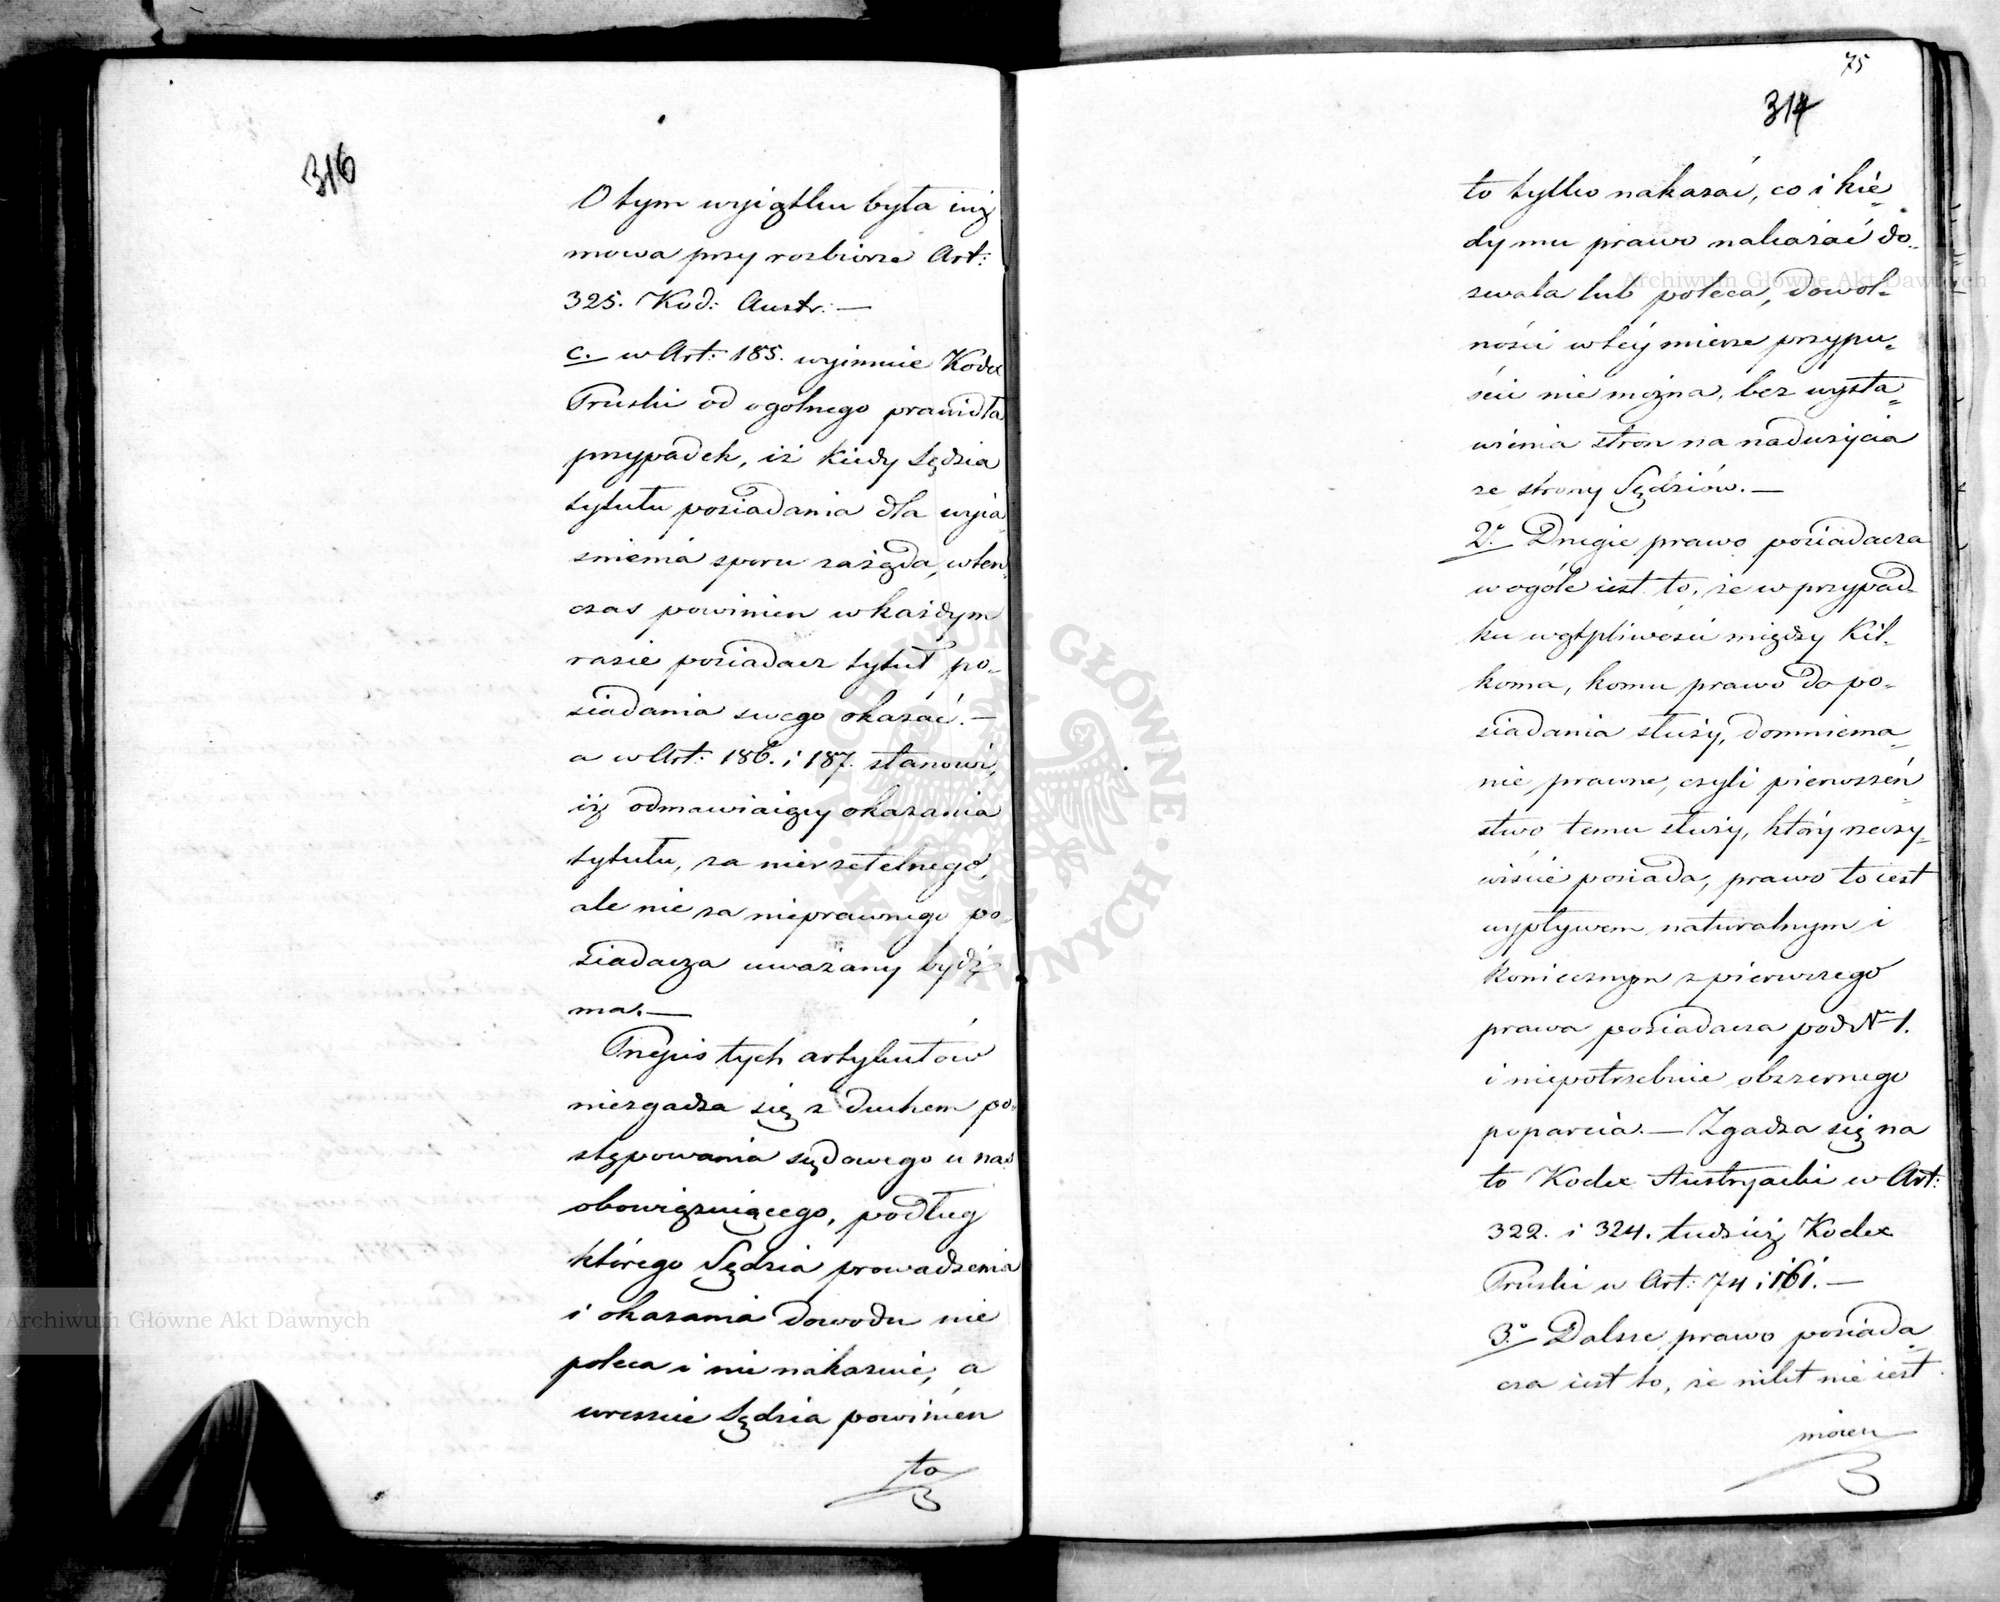 316
O tym wyiątku była iuż
mowa przy rozbiorze Art:
325. Kod: Austr: —
c. w Art: 185. wyimuie Kodex
Pruski od ogolnego prawidła
przypadek, iż kiedy Sędzia
tytułu posiadania dla wyia
śnienia sporu zażąda, wten
czas powinien w każdym
razie posiadacz tytuł po-
siadania swego okazać. —
a w Art: 186. i 187. stanowi,
iż odmawiaiący okazania
tytułu, za nierzetelnego,
ale nie za nieprawnego po-
siadacza uważany bydź
ma. —
Przepis tych artykułów
niezgadza się z duchem po-
stępowania sądowego u nas
obowiązuiącego, podług
którego Sędzia prowadzenia
i okazania dowodu nie
poleca i nie nakazuie, a
wreszcie Sędzia powinien
to
75
317
to tylko nakazać, co i kie-
dy mu prawo nakazać do-
zwala lub poleca, dowol-
ności w téy mierze przypu-
ścić nie można, bez wysta-
wienia stron na nadużycia
ze strony Sędziów. —
2o. Drugie prawo posiadacza
w ogóle iest to, że w przypad-
ku wątpliwości między kil-
koma, komu prawo do po-
siadania służy, domniema-
nie prawne, czyli pierwszeń-
stwo temu służy, który rzeczy-
wiście posiada, prawo to iest
wypływem naturalnym i
koniecznym z pierwszego
prawa posiadacza pod No 1.
i niepotrzebuie obszernego
poparcia. — Zgadza się na
to Kodex Austryacki w Art:
322. i 324. tudzież Kodex
Pruski w Art: 74 i 161. —
3o. Dalsze prawo posiada-
cza iest to, że nikt nie iest
mocen
Archiwum Główne Akt Dawnych
Archiwum Główne Akt Dawnych
ARCHIWUM GŁÓWNE AKT DAWNYCH